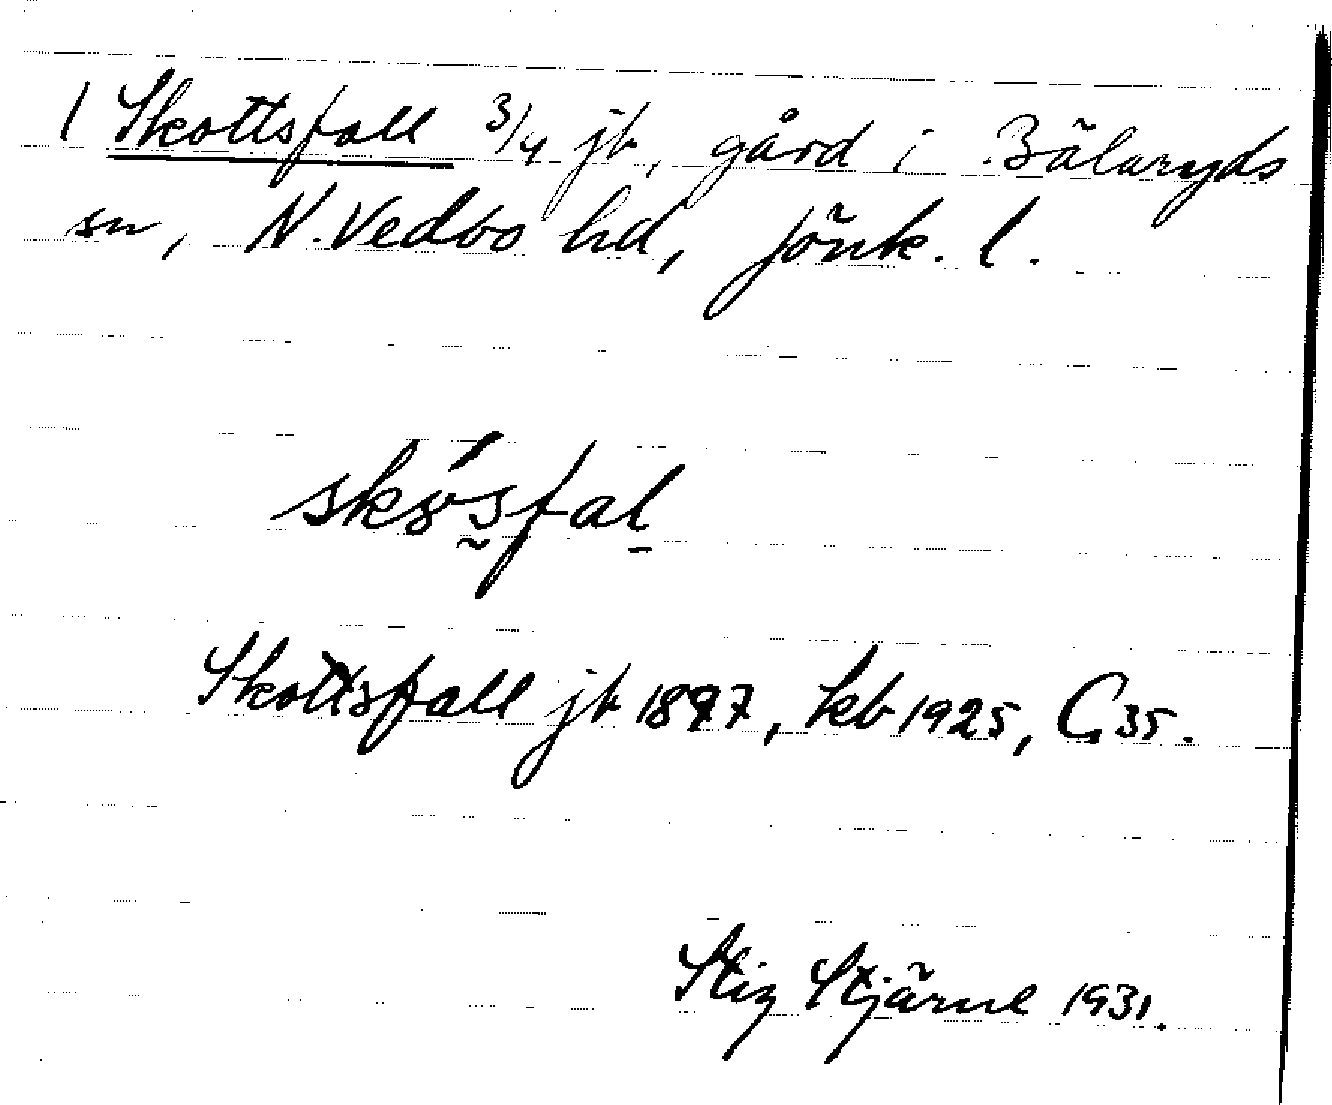 1 Skottsfall 3/4 jb, gård i Bälaryds
sn, N. Vedbo hd, Jönk. l.
Skottsfall jb 1897, kb 1925, G 35.
Stig Stjärne 1931.